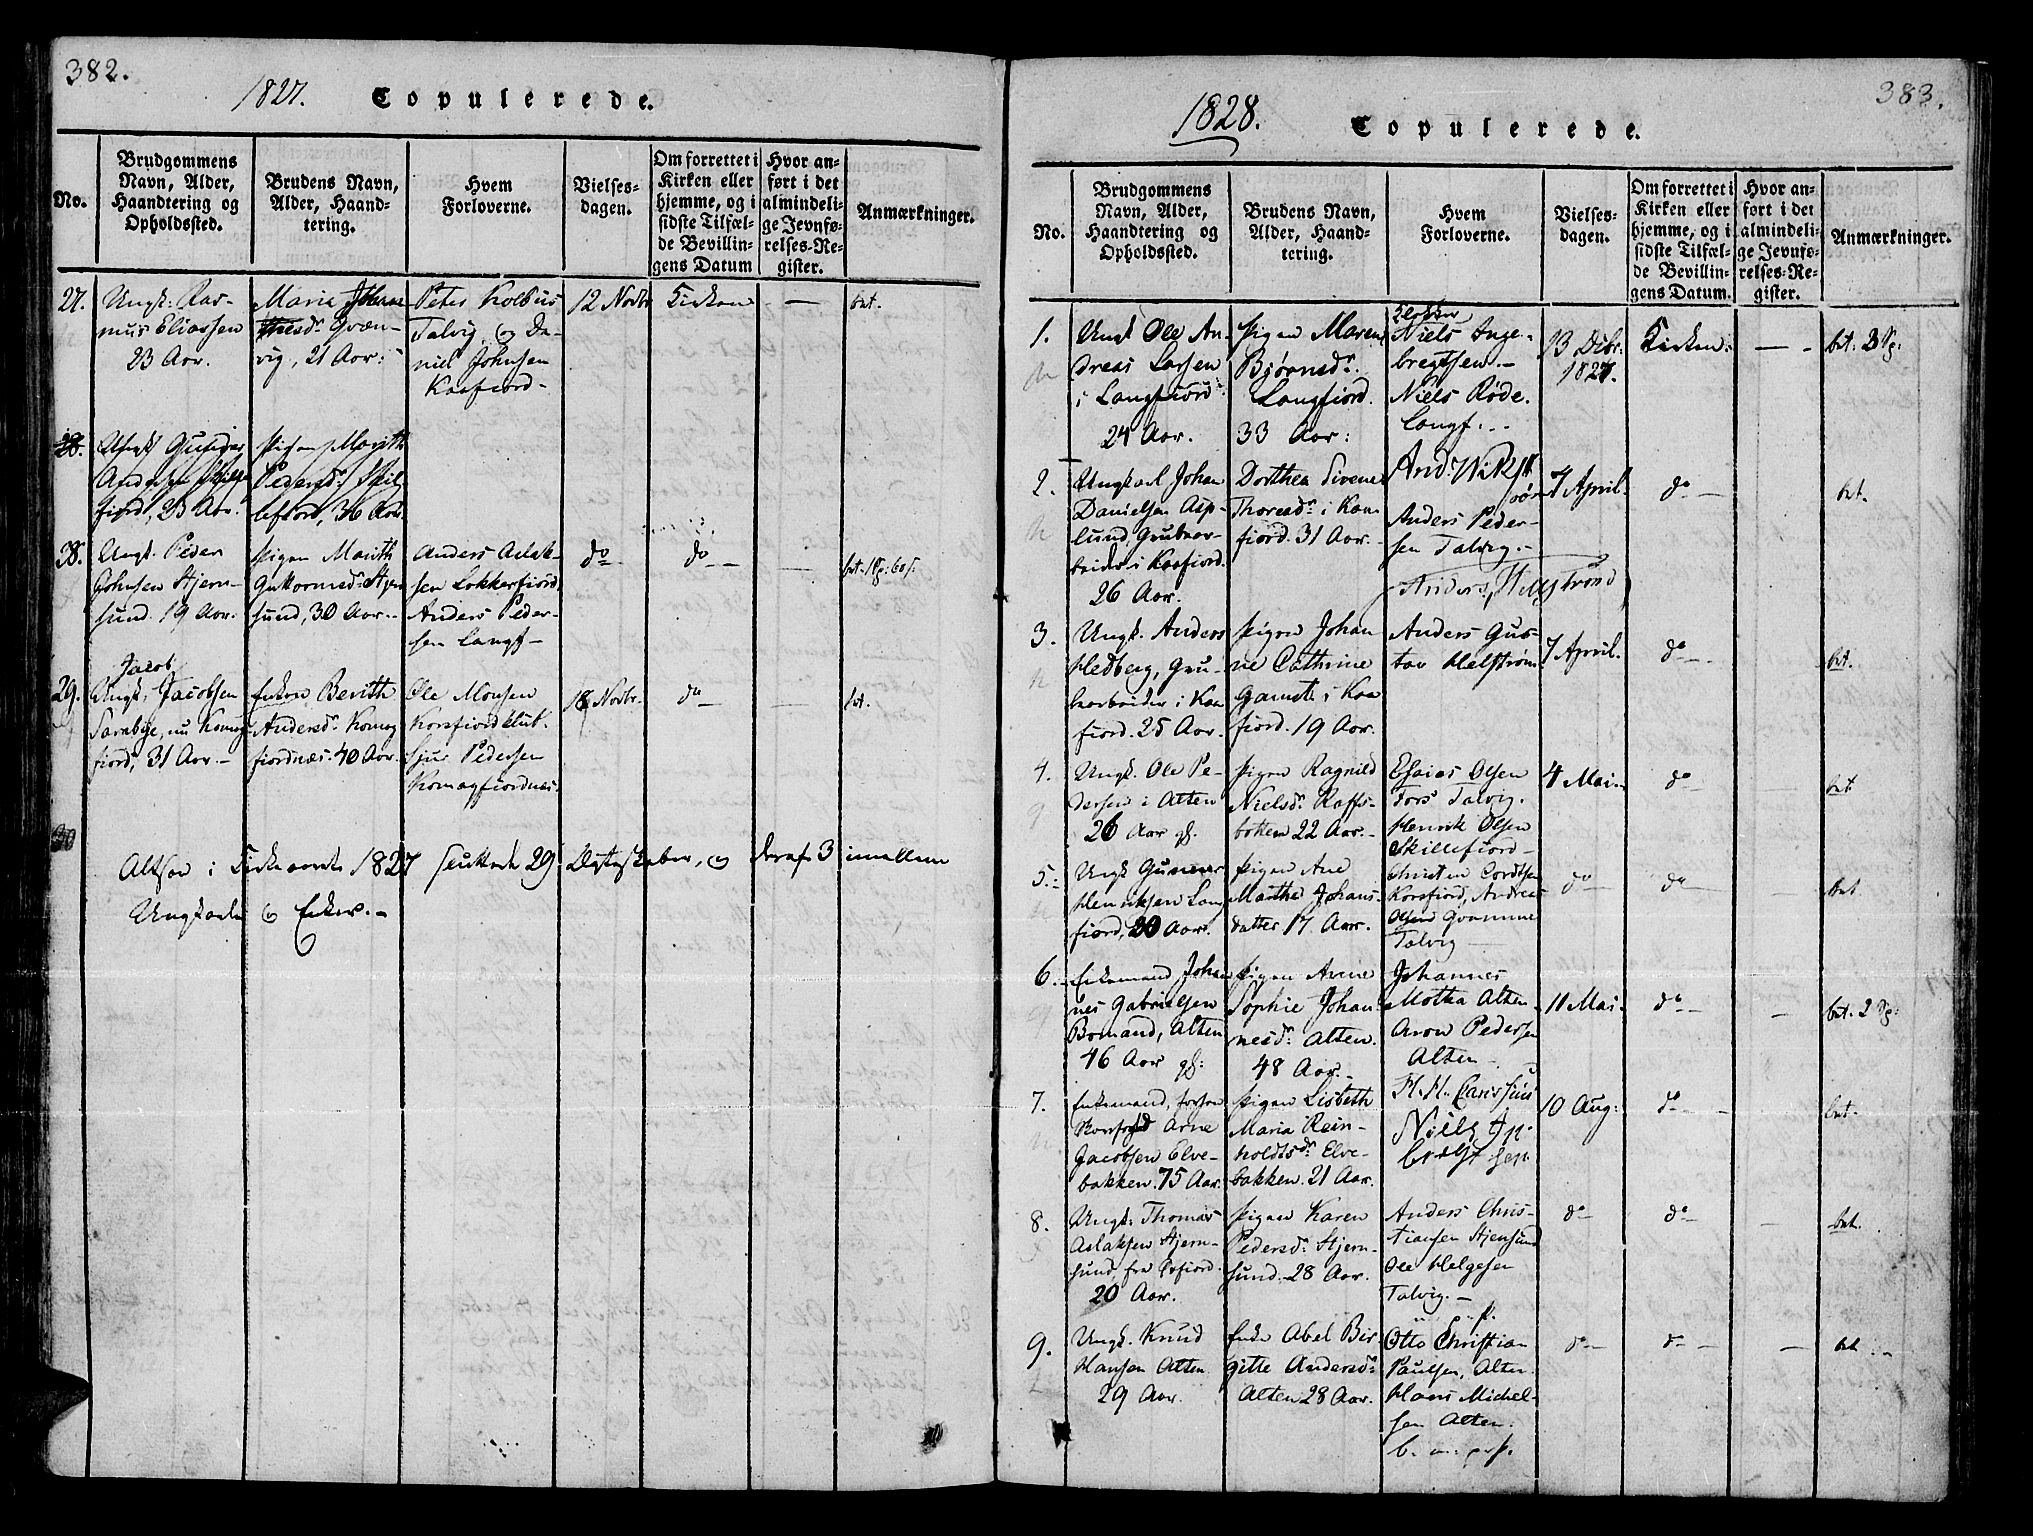 382.
1827. Copulerede.
No.
Brudgommens
Navn, Alder,
Haandtering og
Opholdssted.
Brudens Navn,
Alder, Haand-
tering.
Hvem
Forloverne.
Vielses-
dagen.
Om forrettet i
Kirken eller
hjemme, og i
sidste Tilfæl-
de Bevillin-
gens Datum
Hvor an-
ført i det
almindeli-
ge Jevnfø-
relses-Re-
gister.
Anmærkninger.
27.
Ungk: Ras-
mus Eliassen
23 Aar.
Maria
Qvæn-
vig, 21 Aar:
Peter Kolbus
Talvig, og Da-
niel Johnsen
Kaafiord-
12 Novbr
Kirken
—
bet.
28.
Ungk Gunder
Andersen
fiord, 23 Aar.
Pigen Marith
Pedersdr Skil-
lefiord, 36 Aar.
28.
Ungk. Peder
Johnsen Stjern-
sund. 19 Aar.
Pigen Marith
Guttormsd: Stjern
sund, 30 Aar.-
Anders Aslak-
sen Lokkerfiord
Anders Peder-
sen Langf-
do
do
—
bet. 1 Sp: 60 s.
29.
Jacob
Ungk, Jacobsen
Sarabye, nu Komag
fiord, 31 Aar.-
Enken Berith
Andersdr Komag
fiordnæs. 40 Aar
Ole Monsen
Korsfiordklub.
Sjur Pedersen
Komagfiordnæs.
18 Novbr.
do
bet.
30
Altsaa i Kirkeaaret 1827 sluttede 29 Ægteskaber, og deraf 3 imellem
Ungkarle og Enker.-
383.
1828. Copulerede.
No.
Brudgommens
Navn, Alder,
Haandtering og
Opholdssted.
Brudens Navn,
Alder, Haand-
tering.
Hvem
Forloverne.
Vielses-
dagen.
Om forrettet i
Kirken eller
hjemme, og i
sidste Tilfæl-
de Bevillin-
gens Datum.
Hvor an-
ført i det
almindeli-
ge Jevnfø-
relses-Re-
gister.
Anmærkninger.
1.
Ungk Ole An-
dreas Larsen
i Langfiord
24 Aar.
Pigen Maren
Bjørnsdr.
Langfiord.
33 Aar:
Klokker
Niels Inge-
bregtsen.-
Niels Røde.
Langf:..
13 Debr:
1827.
Kirken:
— -
bet: 2 Sp:
2.
Ungkarl Johan
Danielsen Asp-
lund, Grubear-
beider i Kaafiord.
26 Aar.
Dorthea Sivene
Thoresdr i Kaa
fiord. 31 Aar.-
Anders Peder-
sen Talvig.-
7 April.
do
bet.
3.
Ungk. Anders
Hedberg, Gru-
bearbeider i Kaa
fiord. 25 Aar.
Pigen Johan
ne Cathrine
Garnet. i Kaa
fiord. 19 Aar.
Anders Gus-
tav Helstrøm
7 April.
do
bet.
4.
Ungk. Ole Pe-
dersen i Alten
26 Aar
Pigen Ragnild
Nielsdr. Raffs-
botten 22 Aar.-
Esaias Olsen
Fors Talvig.
Henrik Olsen
Skillefiord-
4 Mai-
do
bet
5.
Ungk Gunner
Henriksen Lang
fiord, 20 Aar.
Pigen Ane
Marthe Johans-
datter 17 Aar.
Christen Cordtsen
Korsfiord, Andreas
Olsen Qvamme
Talvig —
do
do
bet
6.
Enkemand Johan
nes Gabrielsen
Bomand, Alten
46 Aar
Pigen Anne
Sophie Johan-
nesd: Alten.
48 Aar.-
Johannes
Mothka Alten-
Aron Pedersen
Alten -
11 Mai-
do
-
bet. 2 Sp:
7.
Enkemand,
Arne
Jacobsen Elve-
bakken. 75 Aar.
Pigen Lisbeth
Maria Rein-
holdtsdr Elve-
bakken. 21 Aar.
10 Aug:
do
bet.
8.
Ungk: Thomas
Aslaksen Stjern-
sund, fra
20 Aar.
Pigen Karen
Pedersdr Stjern-
sund. 28 Aar.
Anders Chris-
tiansen Stjernsund
Ole Helgesen
Talvig.-
do
do
-
bet.
9.
Ungk. Knud
Hansen Alten
29 Aar.
Enke Abel Bir-
gitte Andersdr
Alten 28 Aar.
Otto Christian
Paulsen, Alten
Hans Michel-
sen Alten.
do
do
-
bet